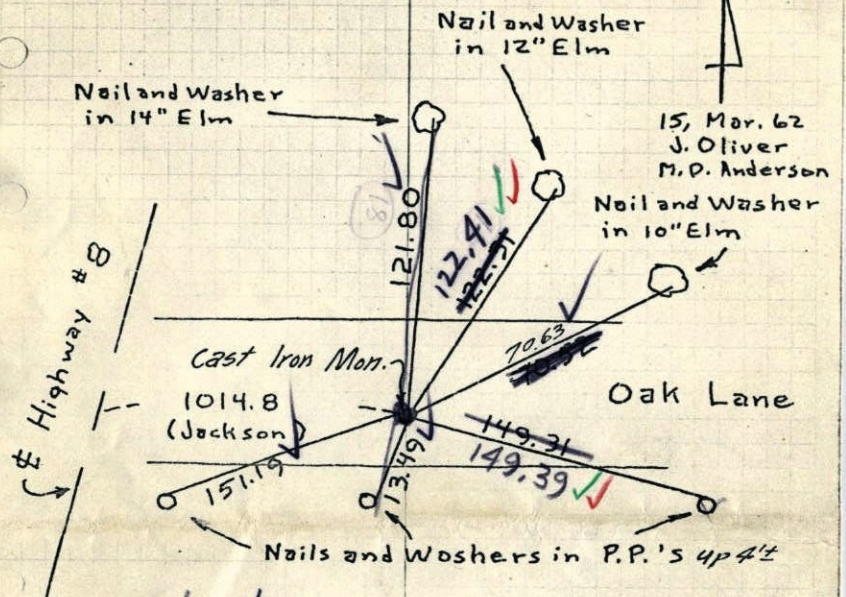 Nail and Washer
in 12" Elm
Nail and Washer
in 14" Elm
15, Mar. 62
J. Oliver
M.D. Anderson
Nail and Washer
in 10" Elm
121.80
122.41
122.31
70.63
70.52
℄ Highway #8
Cast Iron Mon.
1014.8
(Jackson)
Oak Lane
149.31
149.39
151.19
13.49
Nails and Washers in P.P.'s up 4'±